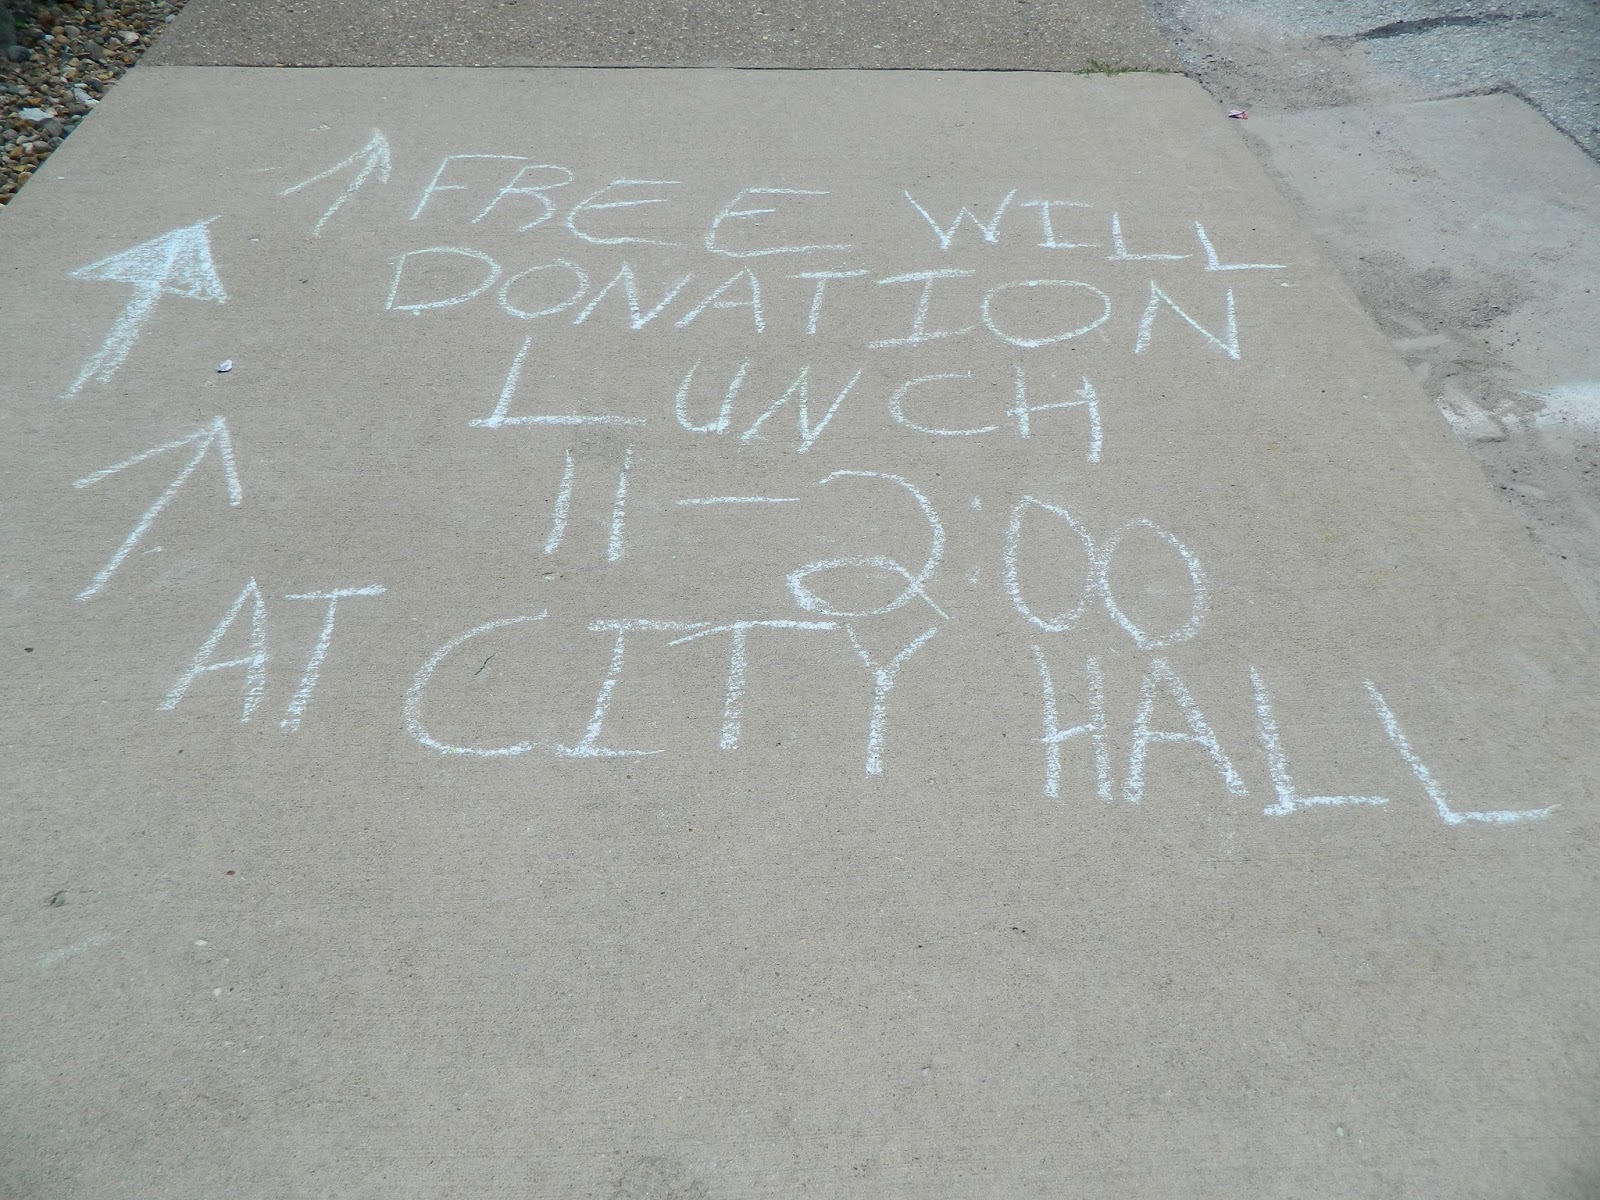 FREE WILL
DONATION
LUNCH
11-2:00
AT CITY HALL